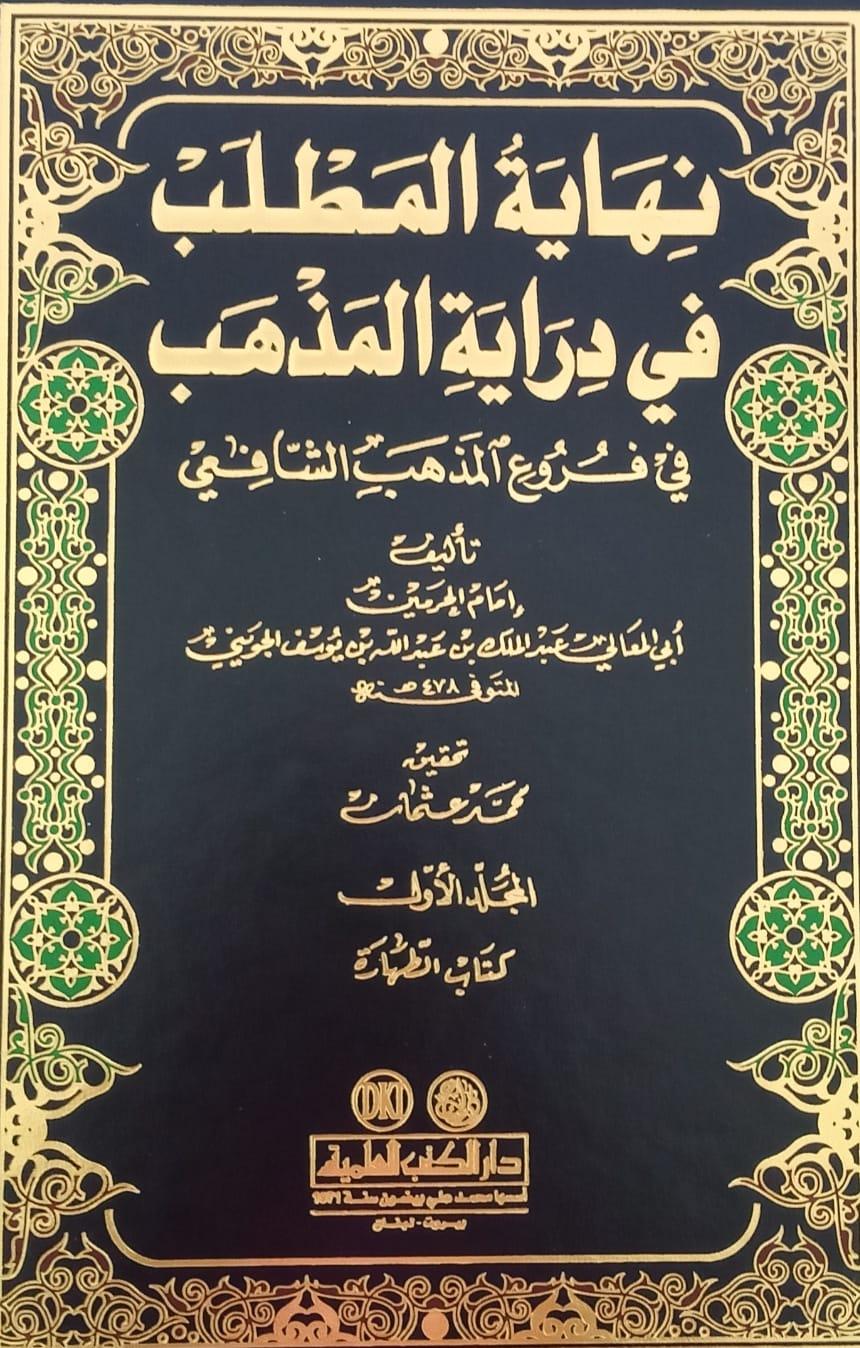 نِهَايَةُ المَطْلَبْ
في دِرَايَةِ المَذْهَبْ
في فُرُوعِ المَذهَبِ الشَّافِعيْ
تأليف
إمَام الحرمين
أبي المعَالي عَبْد الملك بن عَبْد الله بن يُوسُف الجويني
المتوَفى ٤٧٨ هـ
تحقيق
محمَّد عثمان
المجلّد الأوّل
كتَاب الطّهَارَة
DKI
دار الكتب العلمية
أسسها محمد علي بيضون سنة 1971
بيروت - لبنان